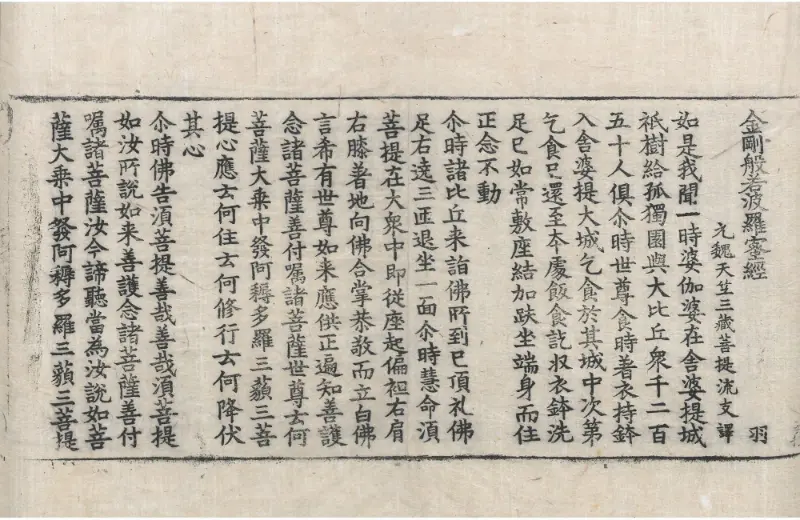 金剛般若波羅蜜經
羽
元魏天竺三藏菩提流支譯
如是我聞一時婆伽婆在舍婆提城
祇樹給孤獨園與大比丘衆千二百
五十人俱尒時世尊食時著衣持鉢
入舍婆提大城乞食於其城中次第
乞食已還至本處飯食訖收衣鉢洗
足已如常敷座結加趺坐端身而住
正念不動
尒時諸比丘来詣佛所到已頂礼佛
足右遶三匝退坐一面尒時慧命湏
菩提在大衆中即從座起偏袒右肩
右膝著地向佛合掌恭敬而立白佛
言希有世尊如来應供正遍知善護
念諸菩薩善付囑諸菩薩世尊云何
菩薩大乗中發阿耨多羅三藐三菩
提心應云何住云何修行云何降伏
其心
尒時佛告湏菩提善哉善哉湏菩提
如汝所說如来善護念諸菩薩善付
囑諸菩薩汝今諦聽當為汝說如菩
薩大乗中發阿耨多羅三藐三菩提